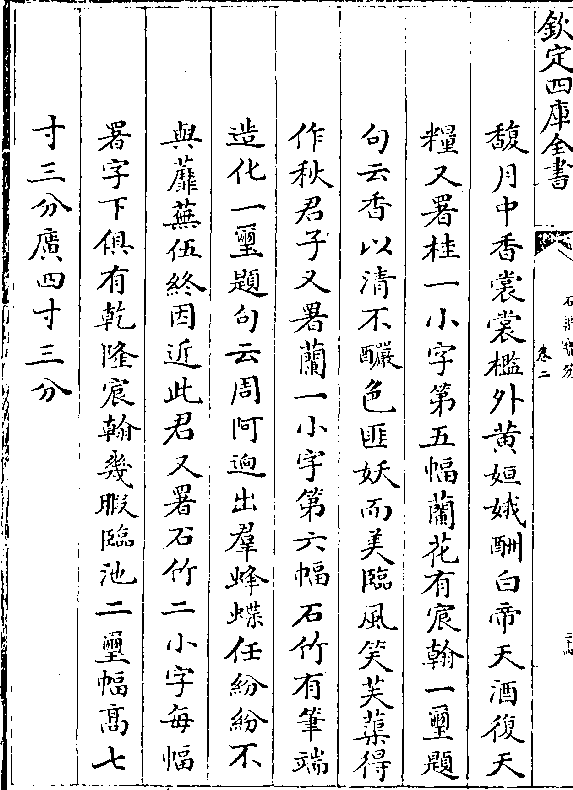 欽定四庫全書
卷二
馥月中香裳裳檻外黄姮娥酬白帝天酒復天
糧又署桂一小字第五幅蘭花有宸翰一璽題
句云香以清不釅色匪妖而美臨風笑芙蕖得
作秋君子又署蘭一小字第六幅石竹有筆端
造化一璽題句云周阿迥出羣蜂蝶任紛紛不
與蘼蕪伍終因近此君又署石竹二小字每幅
署字下俱有乾隆宸翰幾暇臨池二璽幅髙七
寸三分廣四寸三分